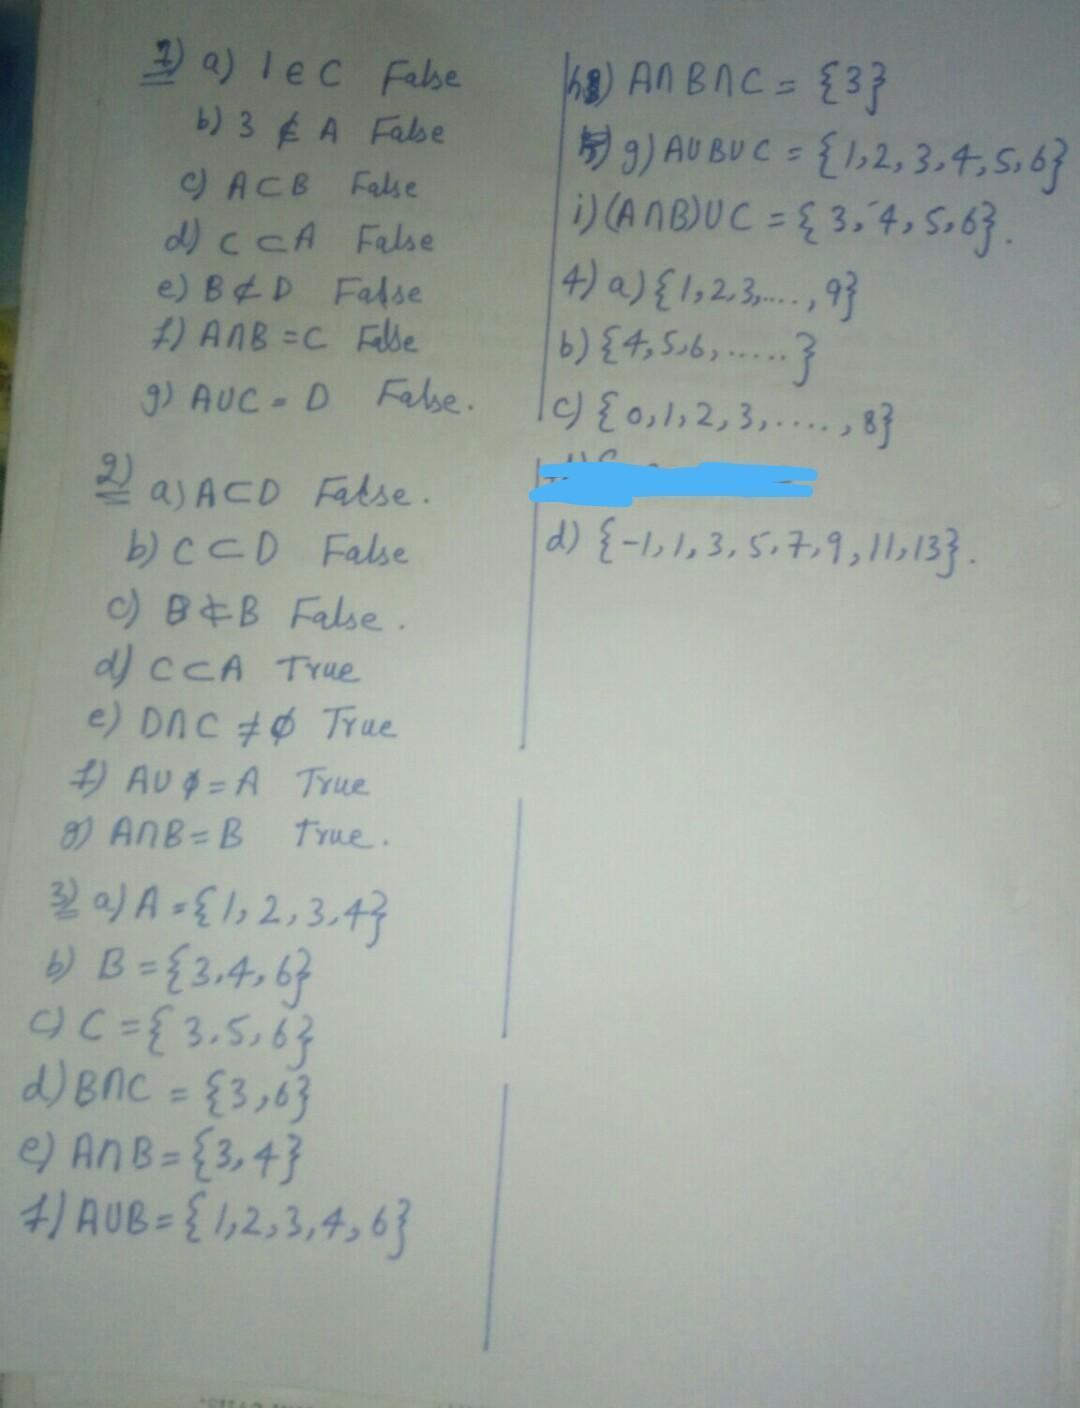 1) a) 1 ∈ C False
b) 3 ∉ A False
c) A ⊂ B False
d) C ⊂ A False
e) B ⊄ D False
f) A∩B = C False
g) A∪C = D False.
2) a) A⊂D False.
b) C ⊂ D False
c) B ⊄ B False.
d) C ⊂ A True
e) D∩C ≠ ϕ True
f) A∪ϕ = A True
g) A∩B = B True.
3) a) A = {1, 2, 3, 4}
b) B = {3, 4, 6}
c) C = {3, 5, 6}
d) B∩C = {3, 6}
e) A∩B = {3, 4}
f) A∪B = {1, 2, 3, 4, 6}
h) A∩B∩C = {3}
g) A∪B∪C = {1, 2, 3, 4, 5, 6}
i) (A∩B)∪C = {3, 4, 5, 6}.
4) a) {1, 2, 3, ...., 9}
b) {4, 5, 6, .....}
c) {0, 1, 2, 3, ....., 8}
d) {-1, 1, 3, 5, 7, 9, 11, 13}.